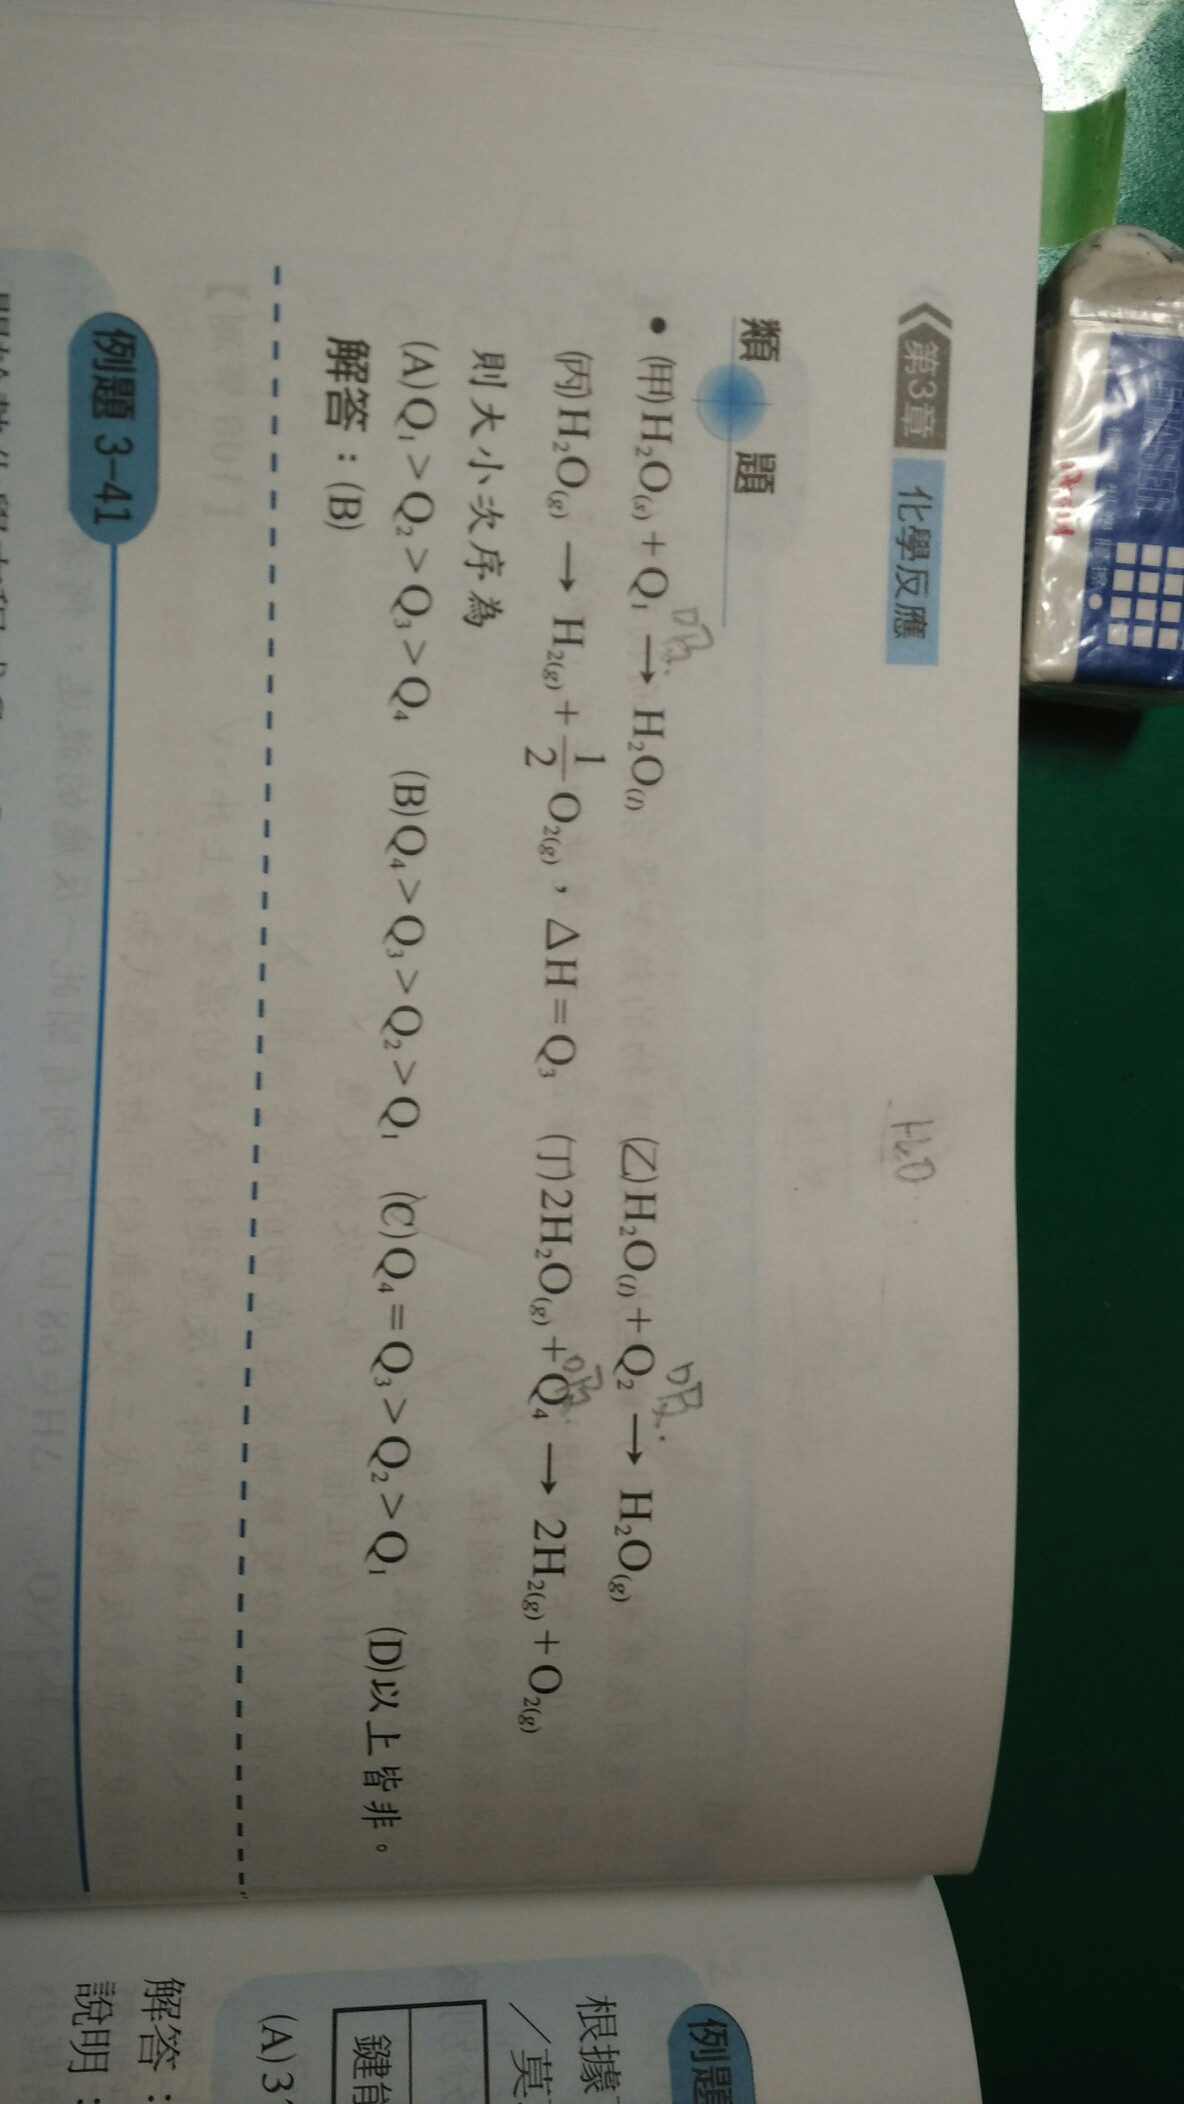 第3章 化學反應
H₂O
類題
• (甲)H₂O₍ₛ₎+Q₁ → H₂O₍ₗ₎ (乙)H₂O₍ₗ₎+Q₂ → H₂O₍g₎
吸 吸
(丙)H₂O₍g₎ → H₂₍g₎+1/2 O₂₍g₎,△H=Q₃ (丁)2H₂O₍g₎+Q₄ → 2H₂₍g₎+O₂₍g₎
吸
則大小次序為
(A)Q₁>Q₂>Q₃>Q₄ (B)Q₄>Q₃>Q₂>Q₁ (C)Q₄=Q₃>Q₂>Q₁ (D)以上皆非。
解答:(B)
例題 3-41
例題
根據
/莫
鍵能
(A)3
解答:
說明:
ERASER